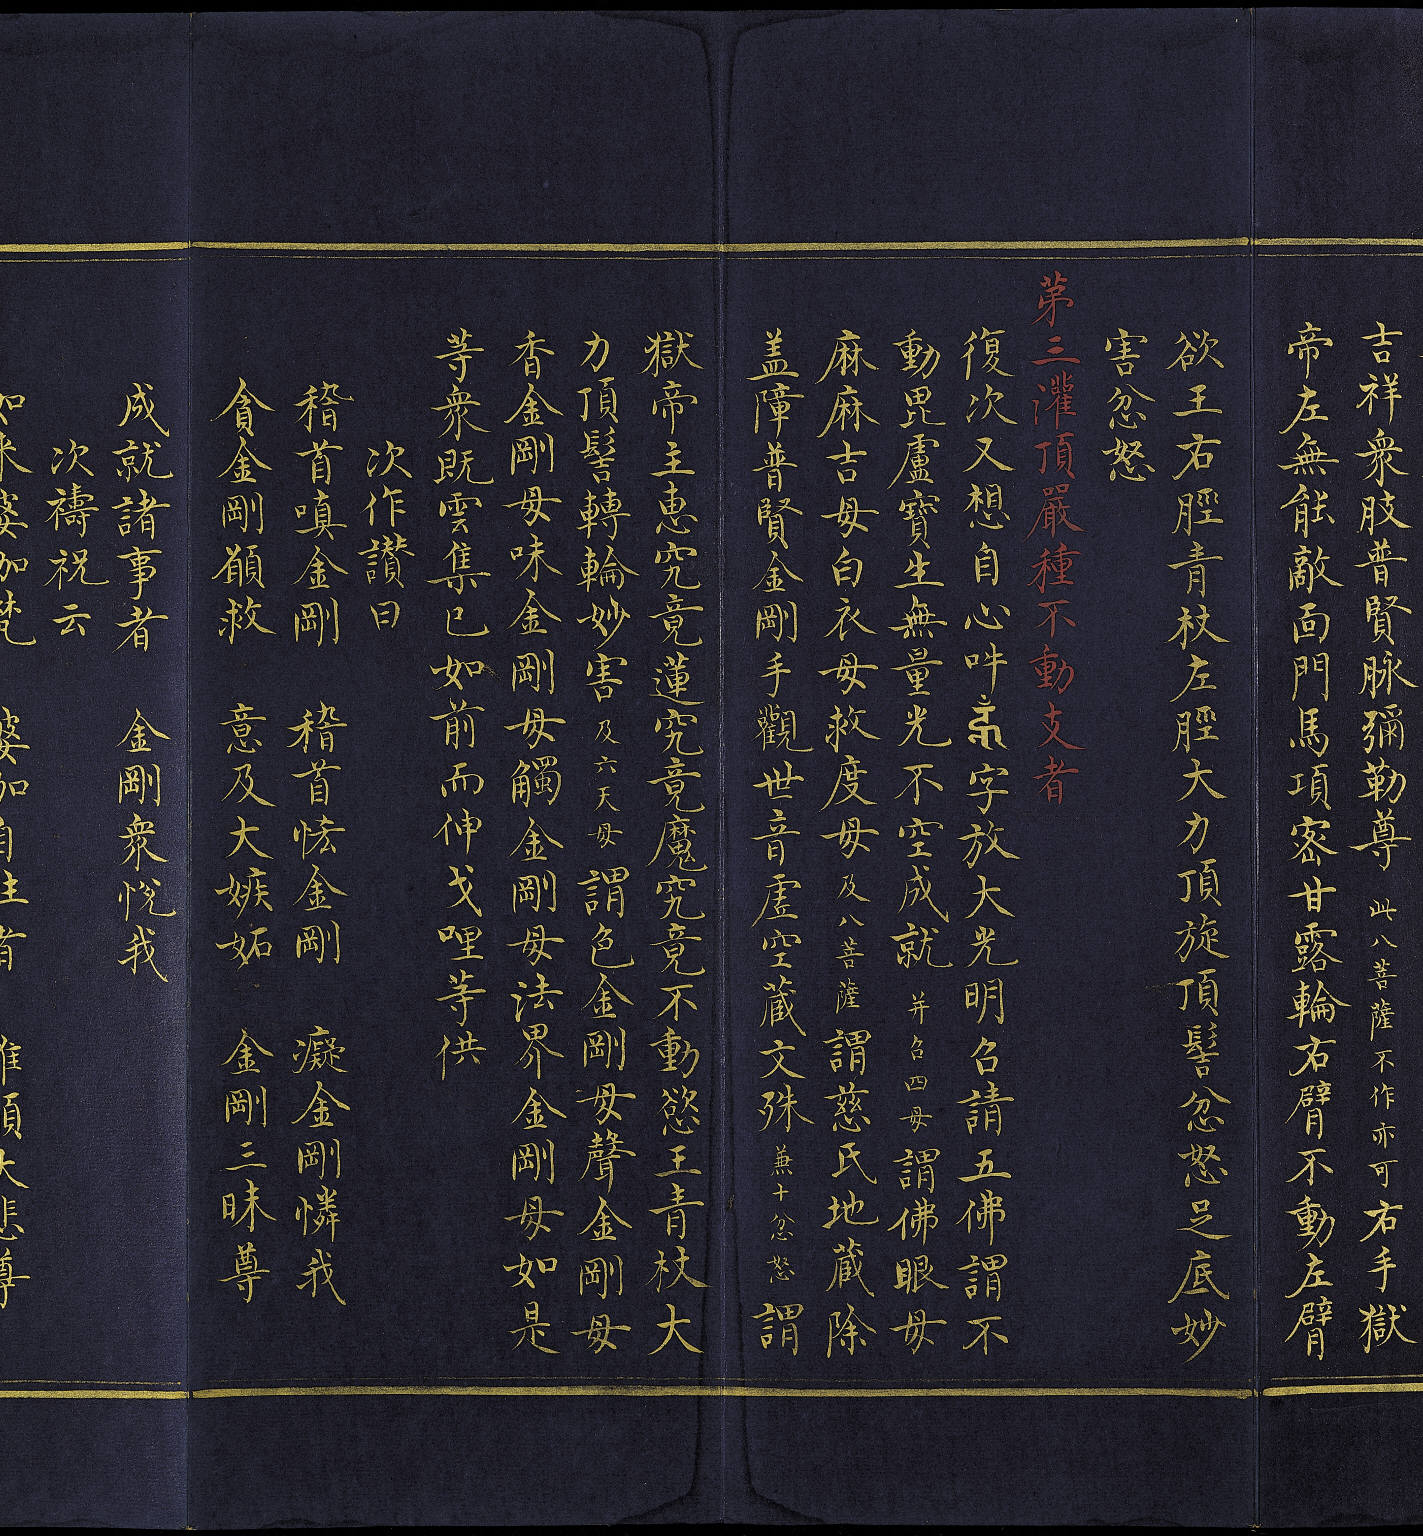 吉祥衆肢普賢脉彌勒尊此八菩薩不作亦可右手獄
帝左無能敵面門馬項密甘露輪右臂不動左臂
欲王右脛青杖左脛大力頂旋頂髻忿怒足底妙
害忿怒
苐三灌頂嚴種不動支者
復次又想自心吽字放大光明召請五佛謂不
動毘盧寶生無量光不空成就并召四母謂佛眼母
麻麻吉母白衣母救度母及八菩薩謂慈氏地藏除
盖障普賢金剛手觀世音虛空藏文殊兼十忿怒謂
獄帝主惠究竟蓮究竟魔究竟不動慾王青杖大
力頂髻轉輪妙害及六天母謂色金剛母聲金剛母
香金剛母味金剛母觸金剛母法界金剛母如是
䓁衆既雲集已如前而伸戈哩䓁供
次作讃曰
稽首嗔金剛 稽首怯金剛 癡金剛憐我
貪金剛願救 意及大嫉妬 金剛三昧尊
成就諸事者 金剛衆悅我
次禱祝云